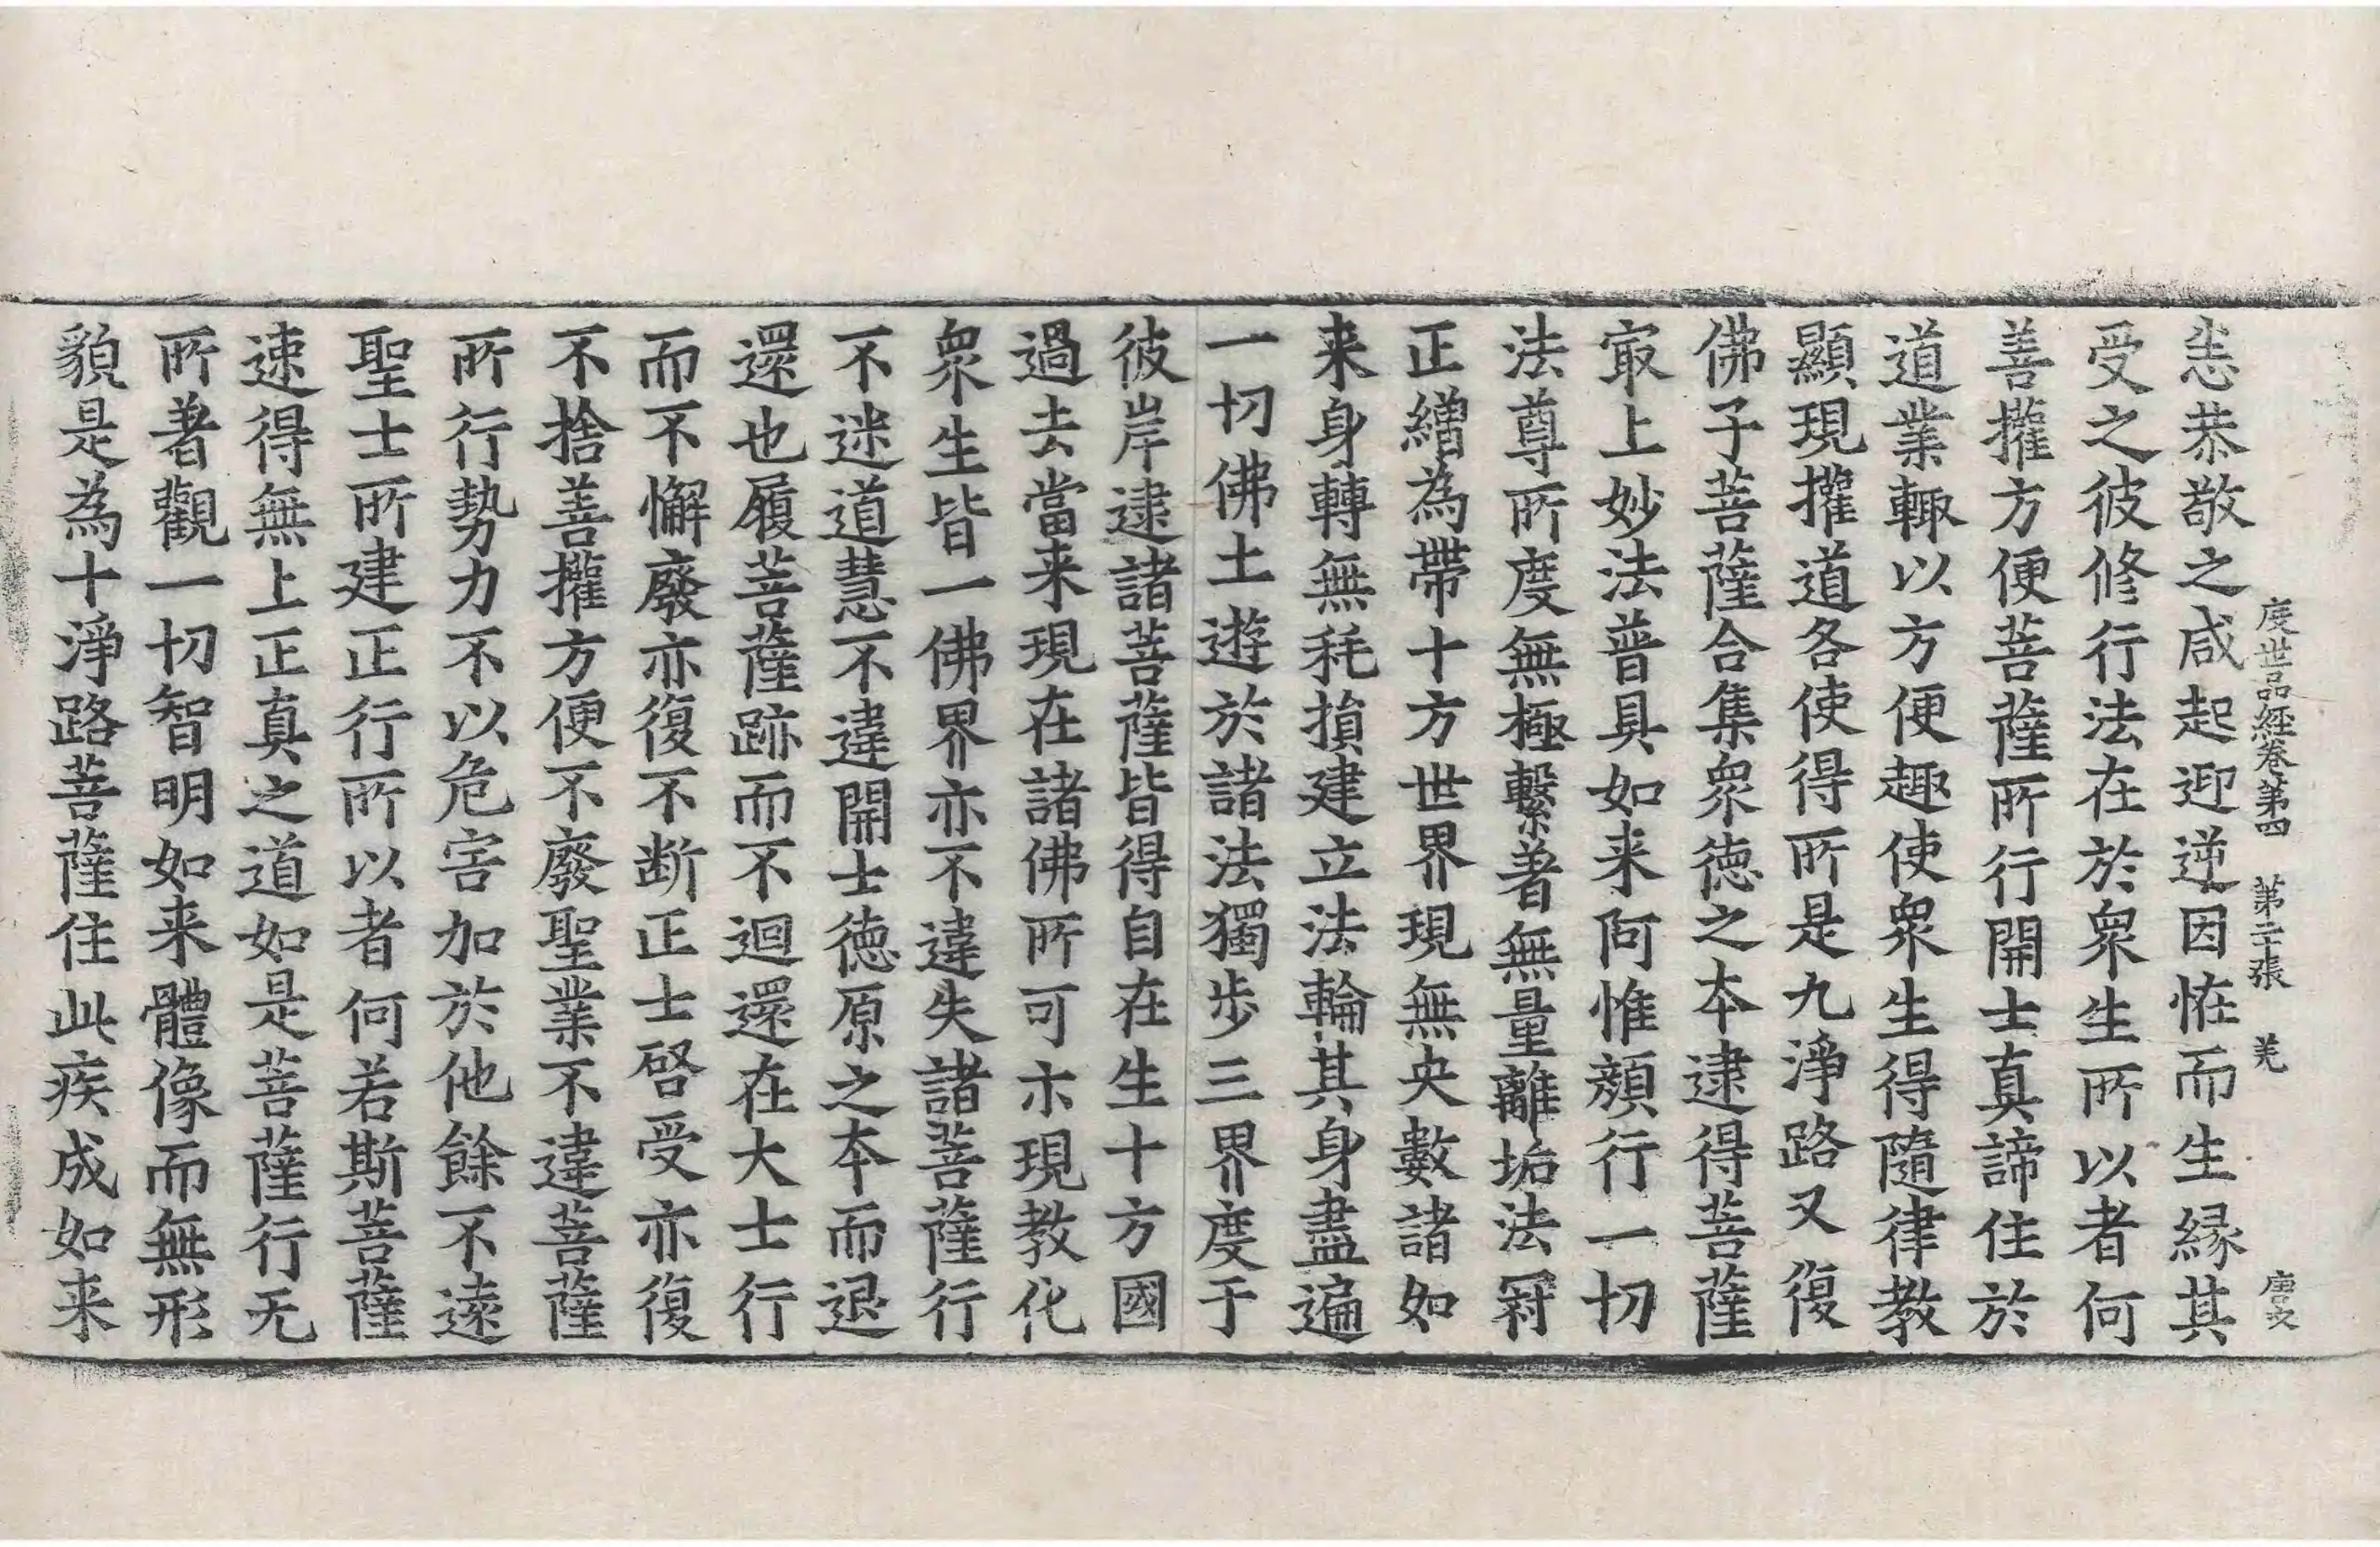 度世品経卷第四　第二十張　羌　唐文
恙恭敬之咸起迎逆因恠而生縁其
受之彼修行法在於衆生所以者何
善攉方便菩薩所行開士真諦住於
道業輙以方便趣使衆生得隨律教
顯現攉道各使得所是九淨路又復
佛子菩薩合集衆徳之夲逮得菩薩
㝡上妙法普具如来阿惟顔行一切
法尊所度無極繫著無量離垢法冠
正繒為帶十方世界現無央數諸如
来身轉無耗損建立法輪其身盡遍
一切佛土遊於諸法獨步三界度于
彼岸逮諸菩薩皆得自在生十方國
過去當来現在諸佛所可示現教化
衆生皆一佛界亦不違失諸菩薩行
不迷道慧不違開士徳原之夲而退
還也履菩薩跡而不迴還在大士行
而不懈廢亦復不断正士啓受亦復
不捨善攉方便不廢聖業不違菩薩
所行勢力不以危害加於他餘不遠
聖士所建正行所以者何若斯菩薩
速得無上正真之道如是菩薩行无
所著觀一切智明如来體像而無形
貌是為十淨路菩薩住此疾成如来